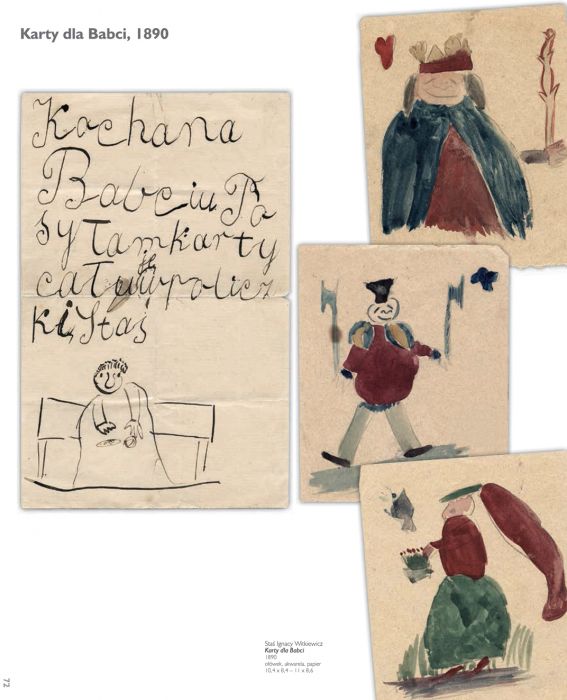 Karty dla Babci, 1890
Kochana
Babciu Po
syłam karty
całuję w policz
ki, Staś
Staś Ignacy Witkiewicz
Karty dla Babci
1890
ołówek, akwarela, papier
10,4 x 8,4 – 11 x 8,6
72